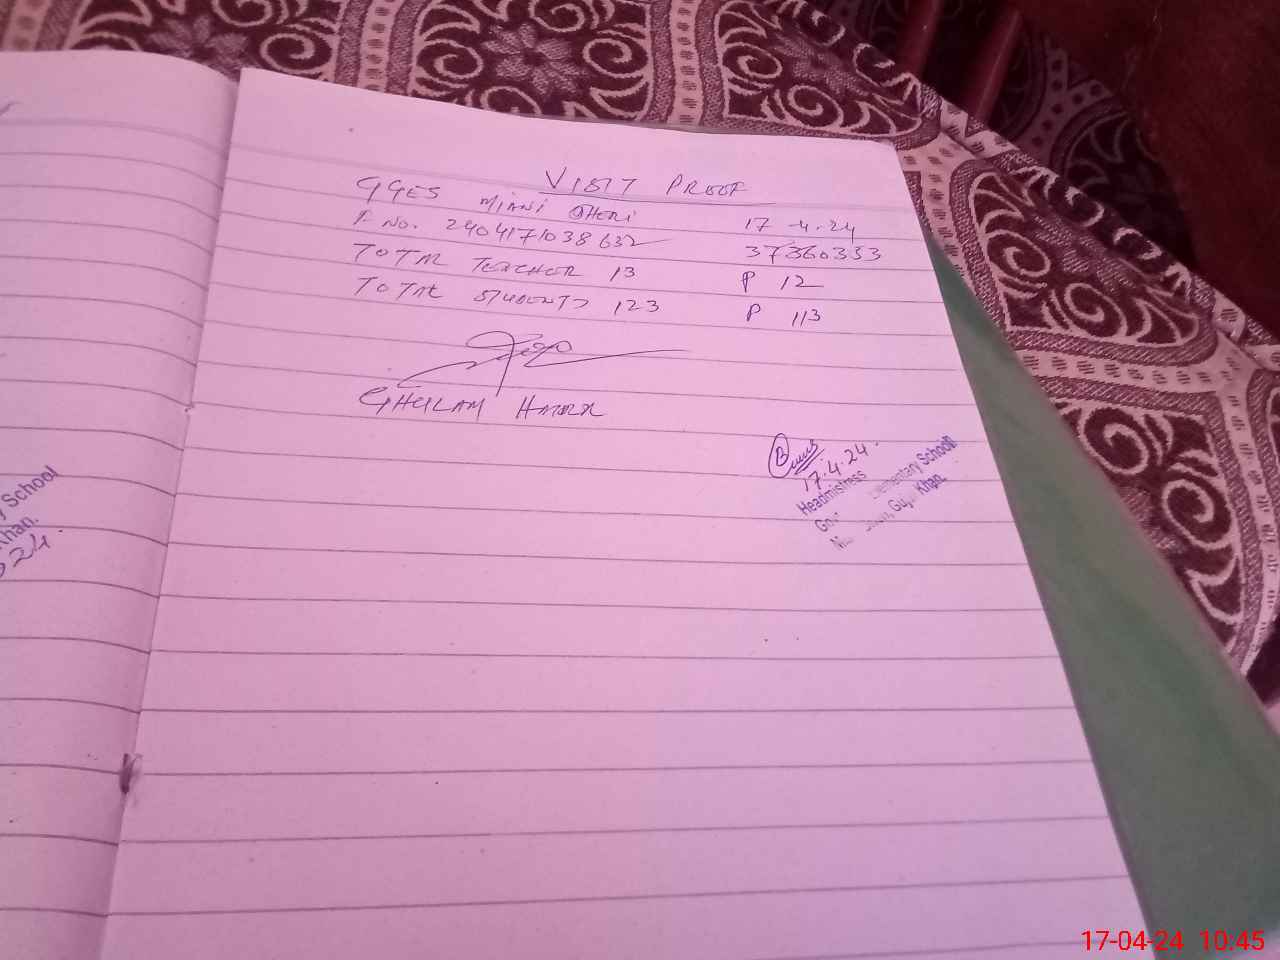 VISIT PROOF
GGES MIANI DHERI 17-4-24
F NO. 2404171038632 37360353
TOTAL TEACHER 13 P 12
TOTAL STUDENTS 123 P 113
GHULAM
17.4.24.
Headmistress
Elementary School
Khan.
y School
Khan.
24.
17-04-24 10:45